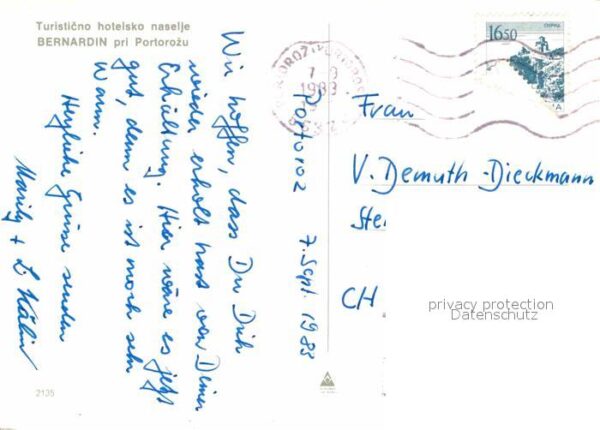 Turistično hotelsko naselje
BERNARDIN pri Portorožu
Portoroz 7. Sept. 1983
Wir hoffen, dass Du Dich
wieder erholt hast von Deiner
Erkältung. Hier wäre es jetzt
gut, denn es ist noch sehr
warm.
Herzliche Grüsse senden
Marily + L. Kälin
Frau
V. Demuth-Dieckmann
Ste
CH
privacy protection
Datenschutz
16.50
1983
2135